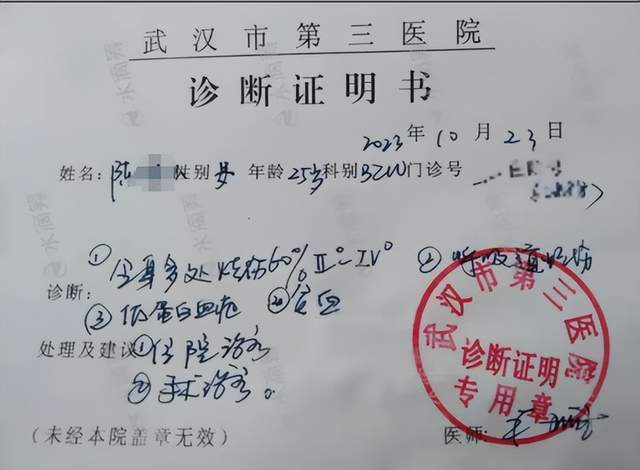 武汉市第三医院
诊断证明书
2023年10月23日
姓名：陈 性别女 年龄25岁科别BICU门诊号
诊断：①全身多处烧伤60%Ⅱ°~Ⅳ° ②呼吸道烧伤
③低蛋白血症 ④贫血
处理及建议①住院治疗
②手术治疗。
武汉市第三医院
诊断证明
专用章
(未经本院盖章无效) 医师:
水滴筹
水滴筹
水滴筹